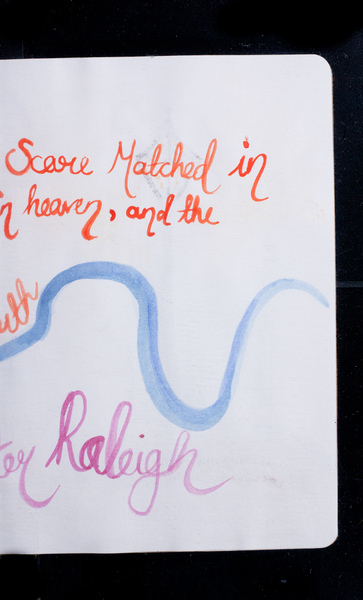 Scare Matched in
in heaven, and the
uth
ter Raleigh